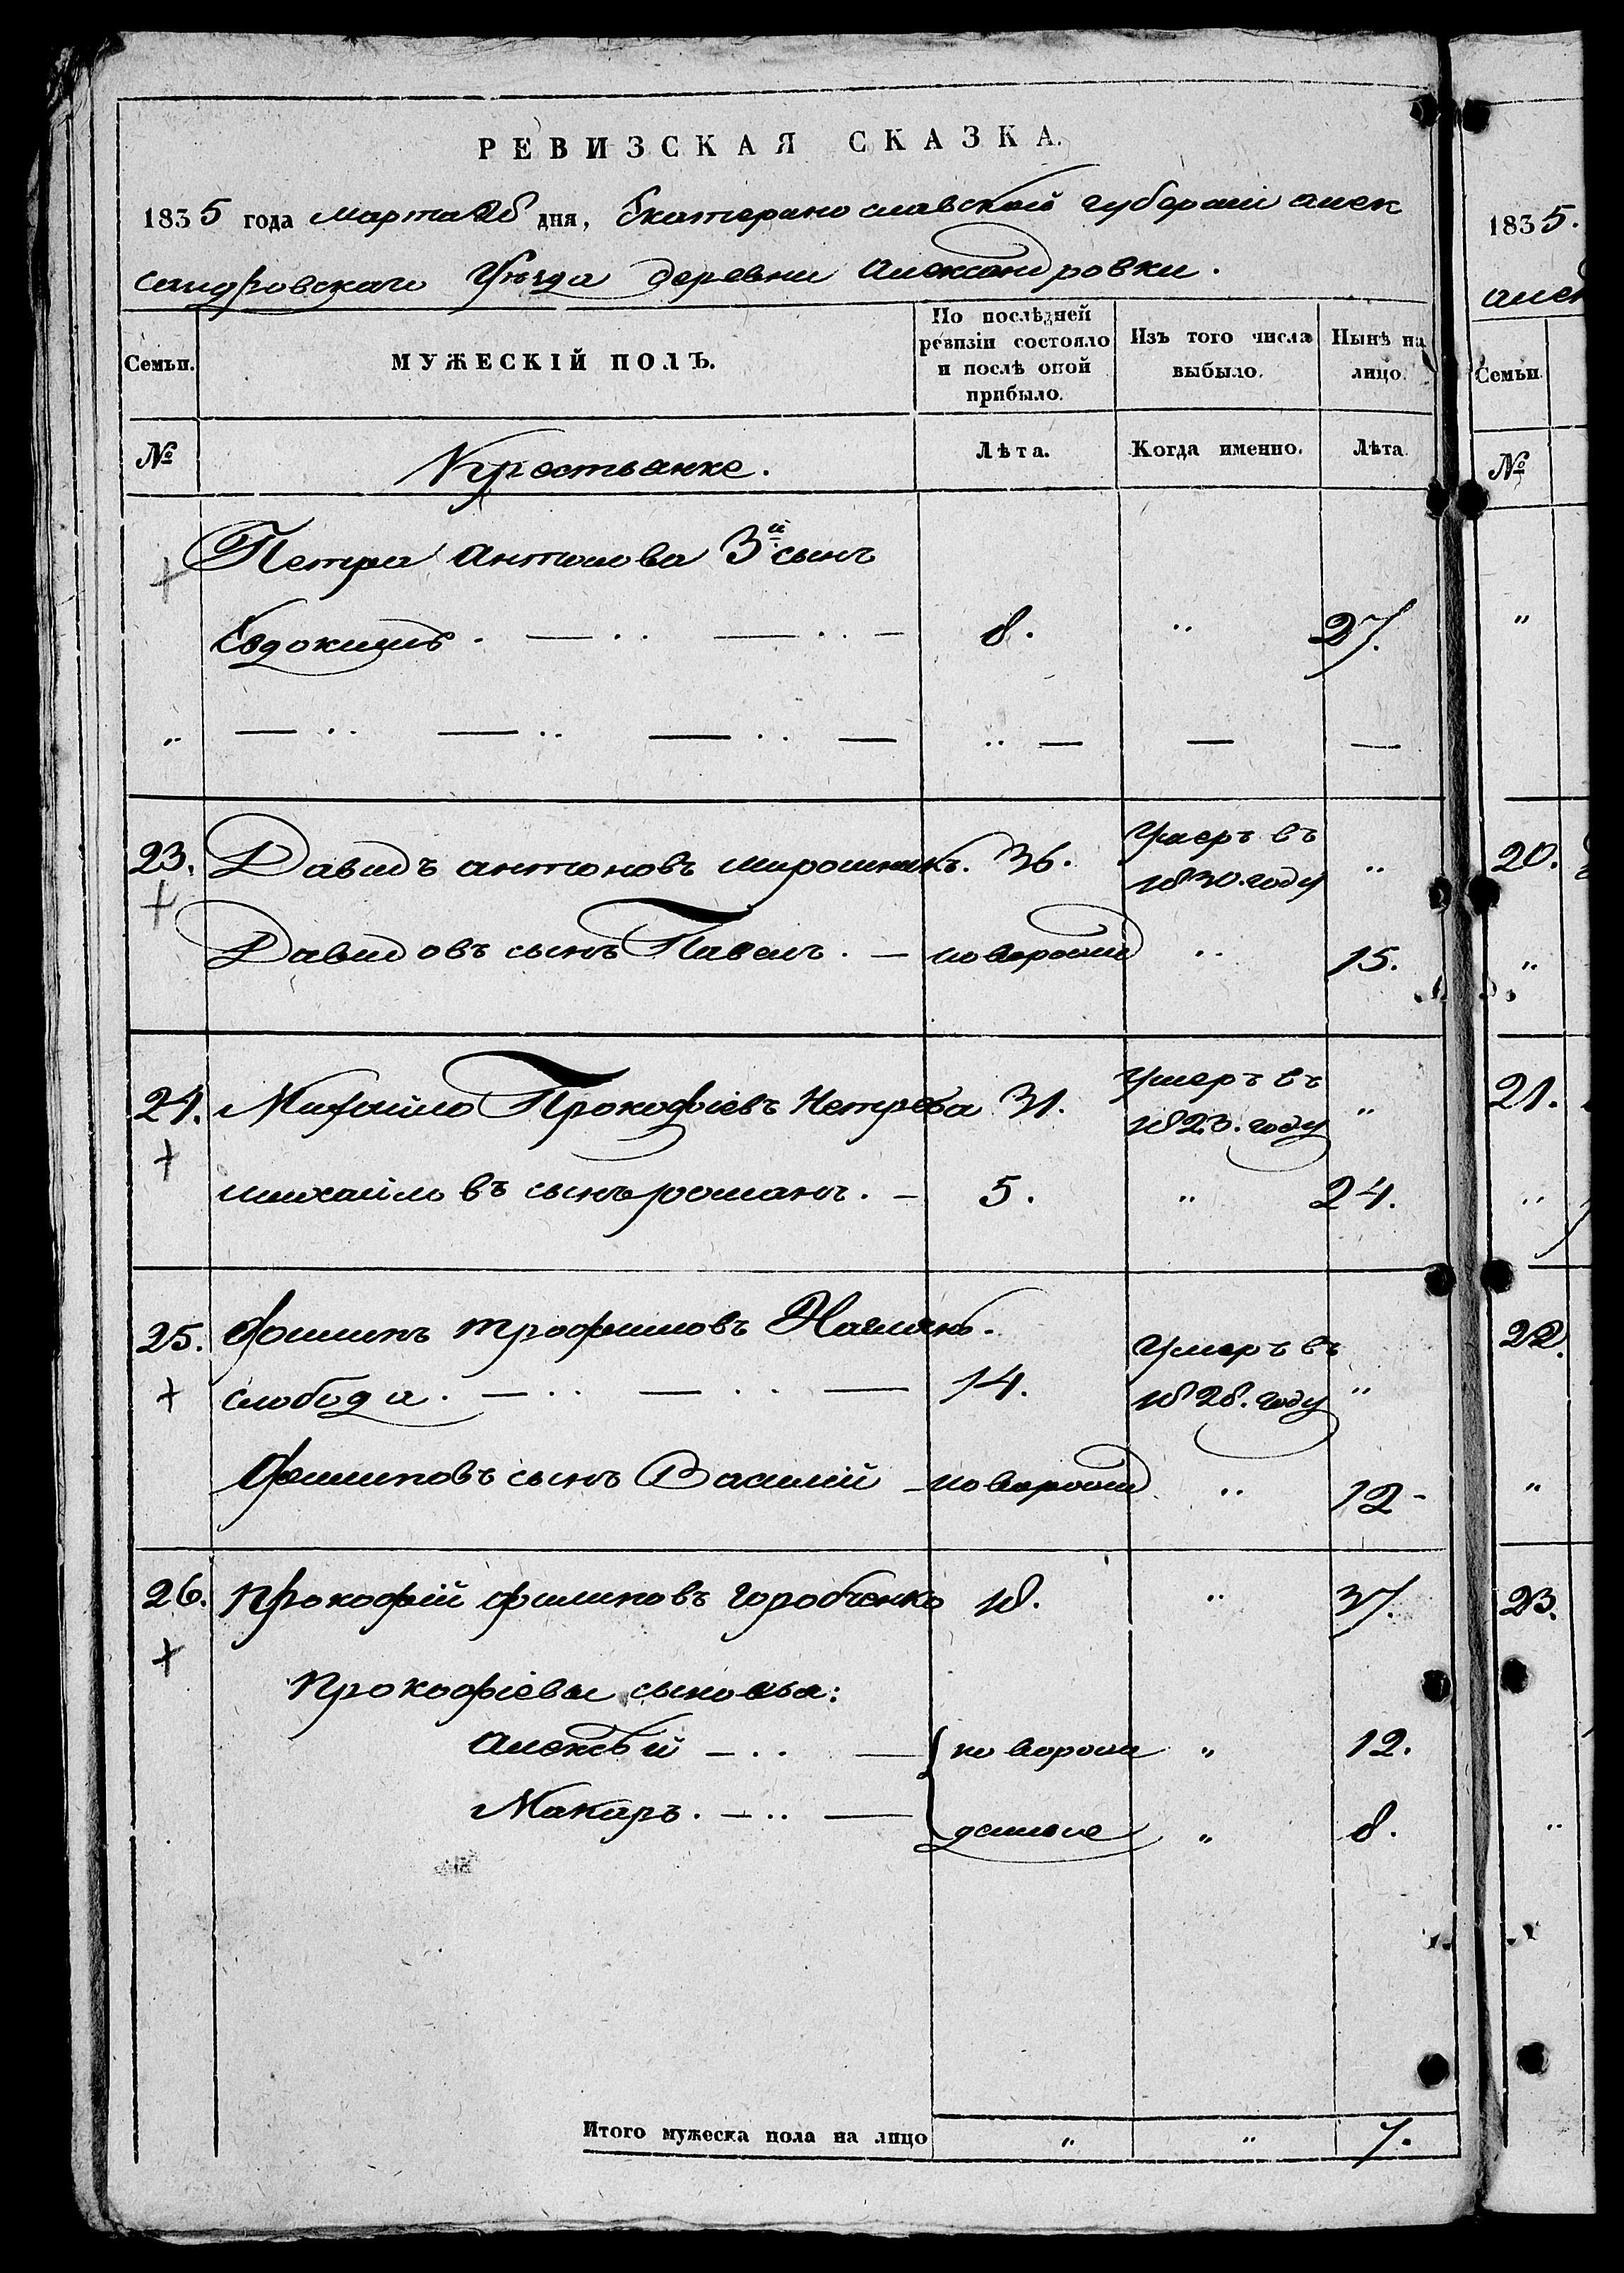 РЕВИЗСКАЯ СКАЗКА.
1835 года марта 26 дня, Екатеринославской губерніи алек
сандровскаго Уѣзда деревни александровки.
Семьи.
МУЖЕСКІЙ ПОЛЪ.
По послѣдней ревизіи состояло и послѣ оной прибыло.
Изъ того числа выбыло.
Нынѣ на лицо.
№
Крестьянне.
Лѣта.
Когда именно.
Лѣта
Петра Антонова 3й сынъ
Евдокимъ. 8. " 27.
23. Давидъ антоновъ мирошникъ. 36. Умеръ въ 1830. году "
Давидовъ сынъ Павелъ. новорожд " 15.
24. Михайло Прокофіевъ Нетреба 31. Умеръ въ 1823. году "
михайловъ сынъ романъ. 5. " 24.
25. Филипъ трофимовъ
слобода. 14. Умеръ въ 1828. году "
Филиповъ сынъ Василій новорожд " 12
26. Прокофій филиповъ горобченко 18. " 37.
Прокофіевы сыновья:
Алексѣй новорож " 12.
Макаръ. денные " 8.
Итого мужеска пола на лицо " " 7.
1835.
алек
Семьи
№
"
20.
"
21.
"
22.
"
23.
"